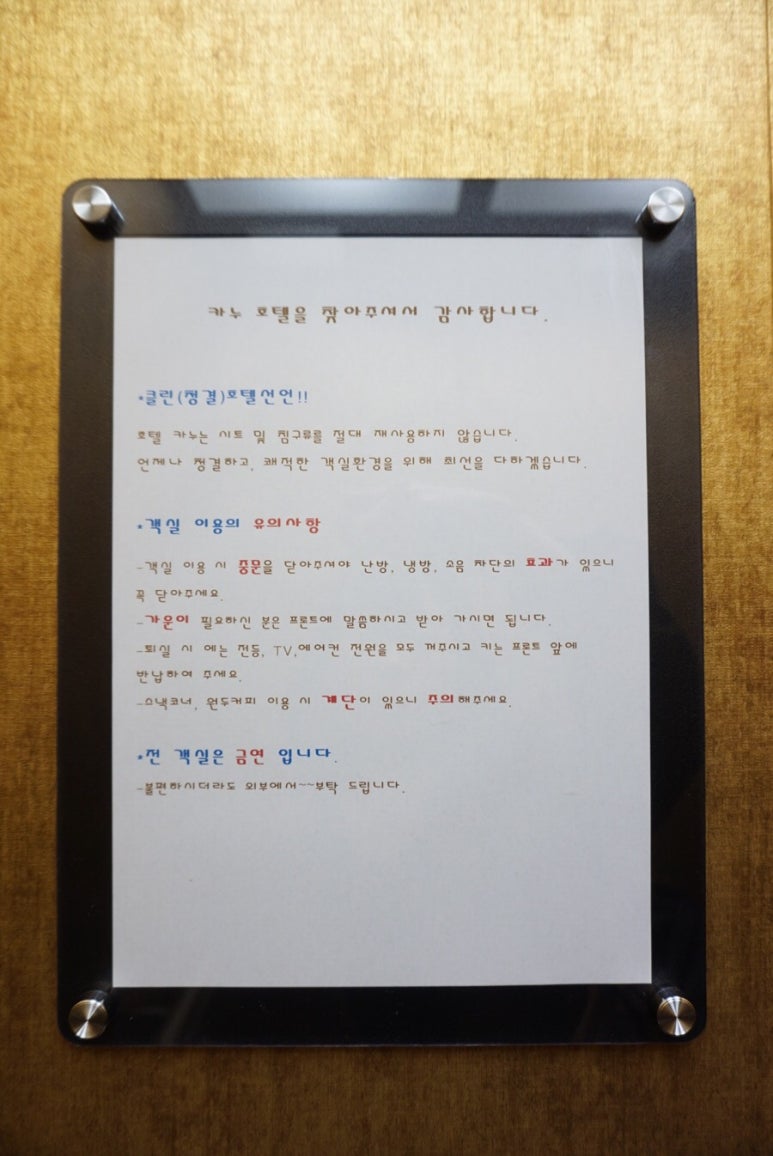 카누 호텔을 찾아주셔서 감사합니다.
*클린(청결)호텔선언!!
호텔 카누는 시트 및 침구류를 절대 재사용하지 않습니다.
언제나 청결하고, 쾌적한 객실환경을 위해 최선을 다하겠습니다.
*객실 이용의 유의사항
-객실 이용 시 중문을 닫아주셔야 난방, 냉방, 소음 차단의 효과가 있으니
꼭 닫아주세요.
-가운이 필요하신 분은 프론트에 말씀하시고 받아 가시면 됩니다.
-퇴실 시 에는 전등, TV,에어컨 전원을 모두 꺼주시고 키는 프론트 앞에
반납하여 주세요.
-스낵코너, 원두커피 이용 시 계단이 있으니 주의해주세요.
*전 객실은 금연 입니다.
-불편하시더라도 외부에서~~부탁 드립니다.